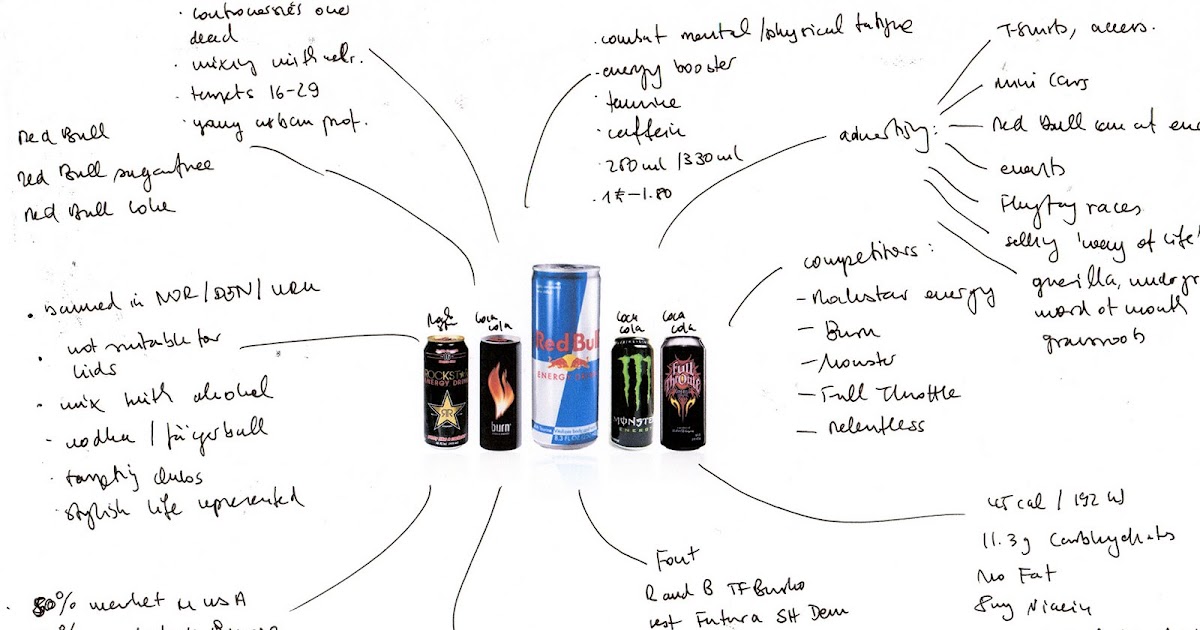 · controversies over
dead
· mixing with alc.
· targets 16-29
· young urban prof.
Red Bull
Red Bull sugarfree
Red Bull Coke
· combat mental/physical fatigue
· energy booster
· taurine
· caffein
· 250 ml / 330 ml
advertising:
T-shirts, access.
mini cars
Red Bull can at
events
Flugtag races
selling 'way of life'
guerilla,
word of mouth
grassroots
competitors:
- Rockstar energy
- Burn
- Monster
- Full Throttle
- Relentless
· banned in NOR/DEN/
· not suitable for
kids
· mix with alcohol
· vodka / jägerball
· targeting clubs
· stylish life represented
Coca
Cola
Coca
Cola
Coca
Cola
ROCKSTAR
ENERGY DRINK
burn
Red Bull
ENERGY DRINK
8.3 FL OZ
MONSTER
ENERGY
Full
Throttle
45 cal / 192
11.3g Carbohydrates
No Fat
8mg Niacin
Font
R and B TF
rest Futura SH Dem
80% market in USA